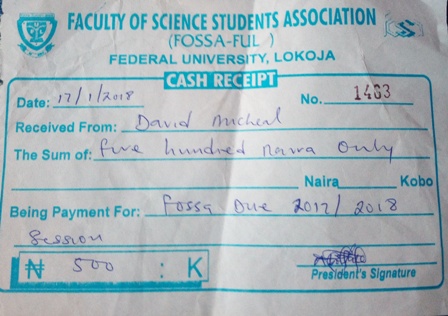 FACULTY OF SCIENCE STUDENTS ASSOCIATION
(FOSSA-FUL)
FEDERAL UNIVERSITY, LOKOJA
CASH RECEIPT
Date: 17/1/2018 No. 1463
Received From: David Micheal
The Sum of: five hundred naira only
Naira Kobo
Being Payment For: Fossa Due 2017/2018
Session
₦ 500 : K
President's Signature